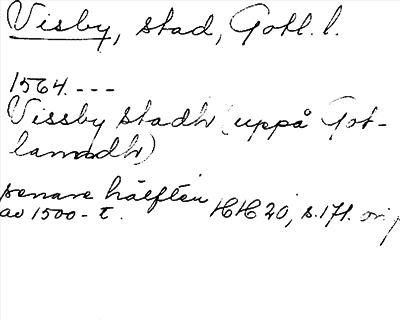 Visby, stad, Gotl. l.
1564. ---
Vissby stadh (uppå Got-
lanndh)
senare hälften
av 1500-t. HH 20, s. 171. orig